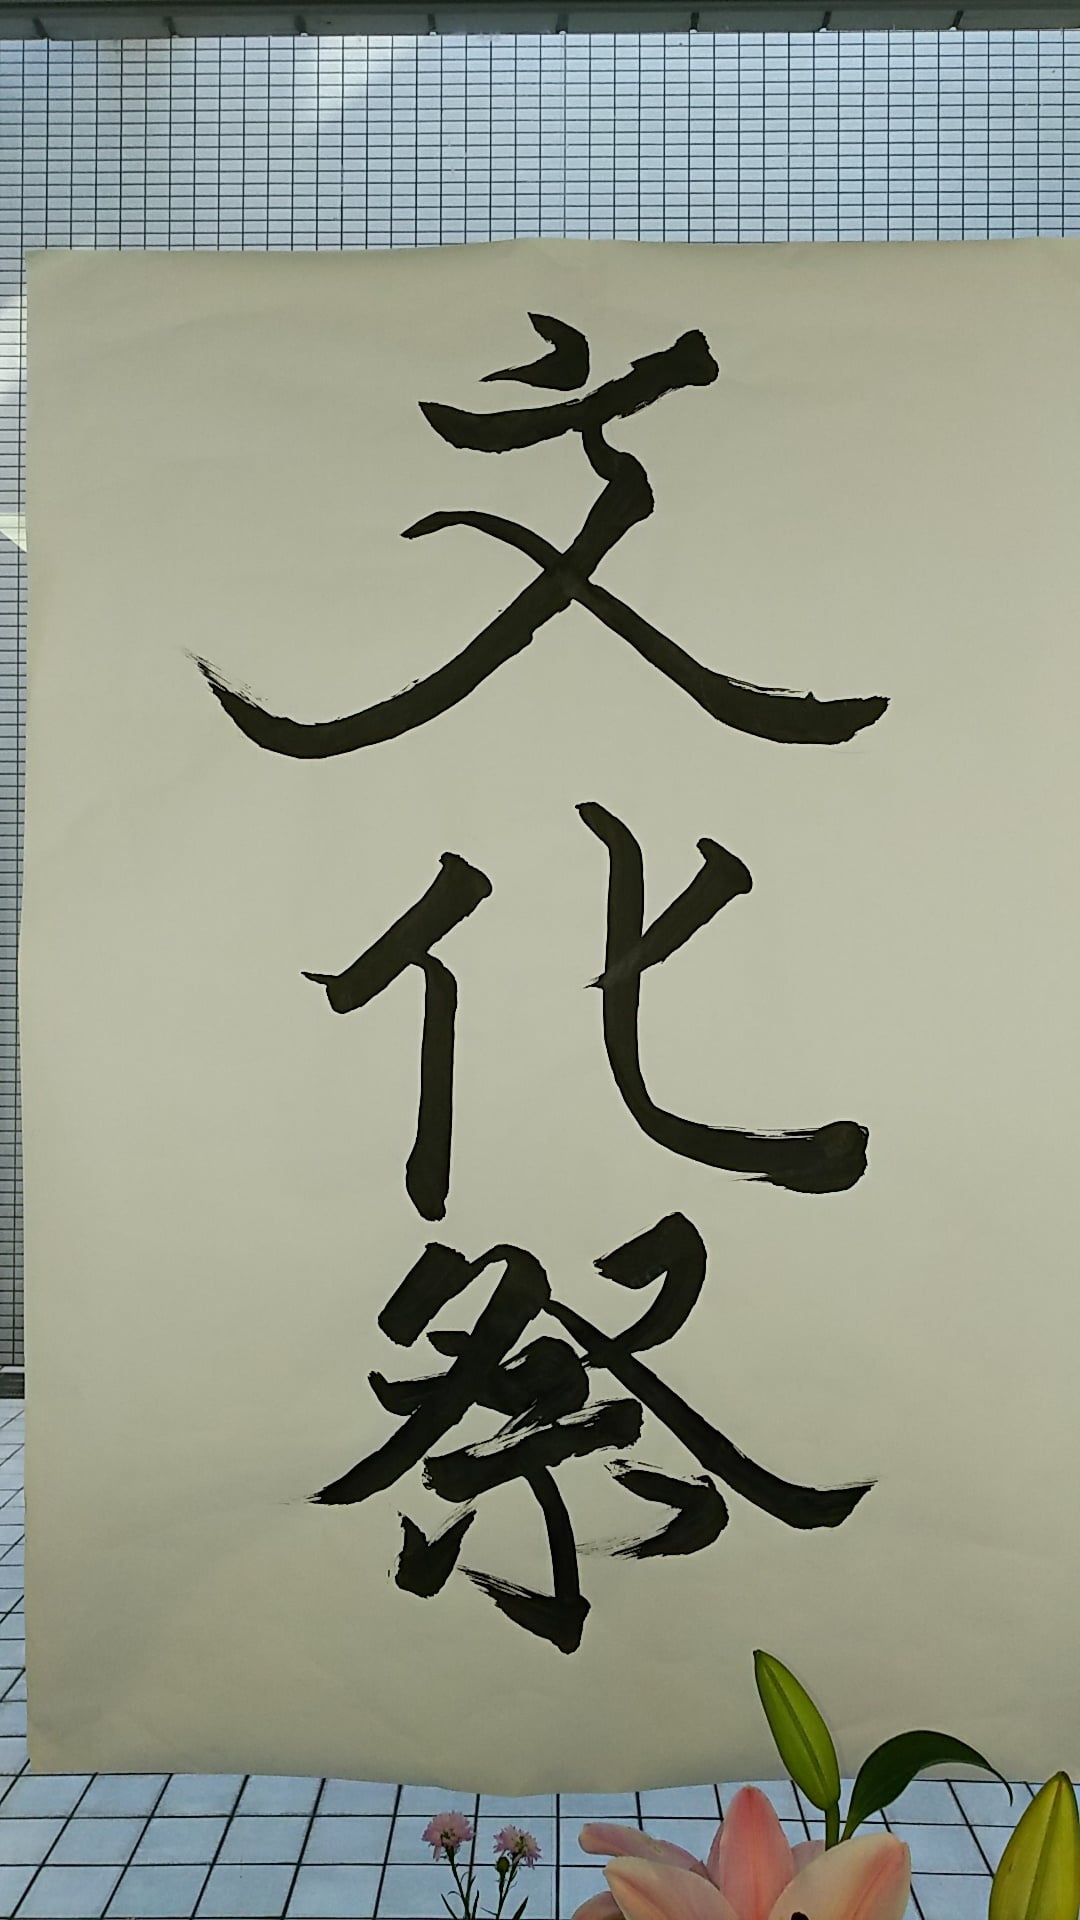 文化祭